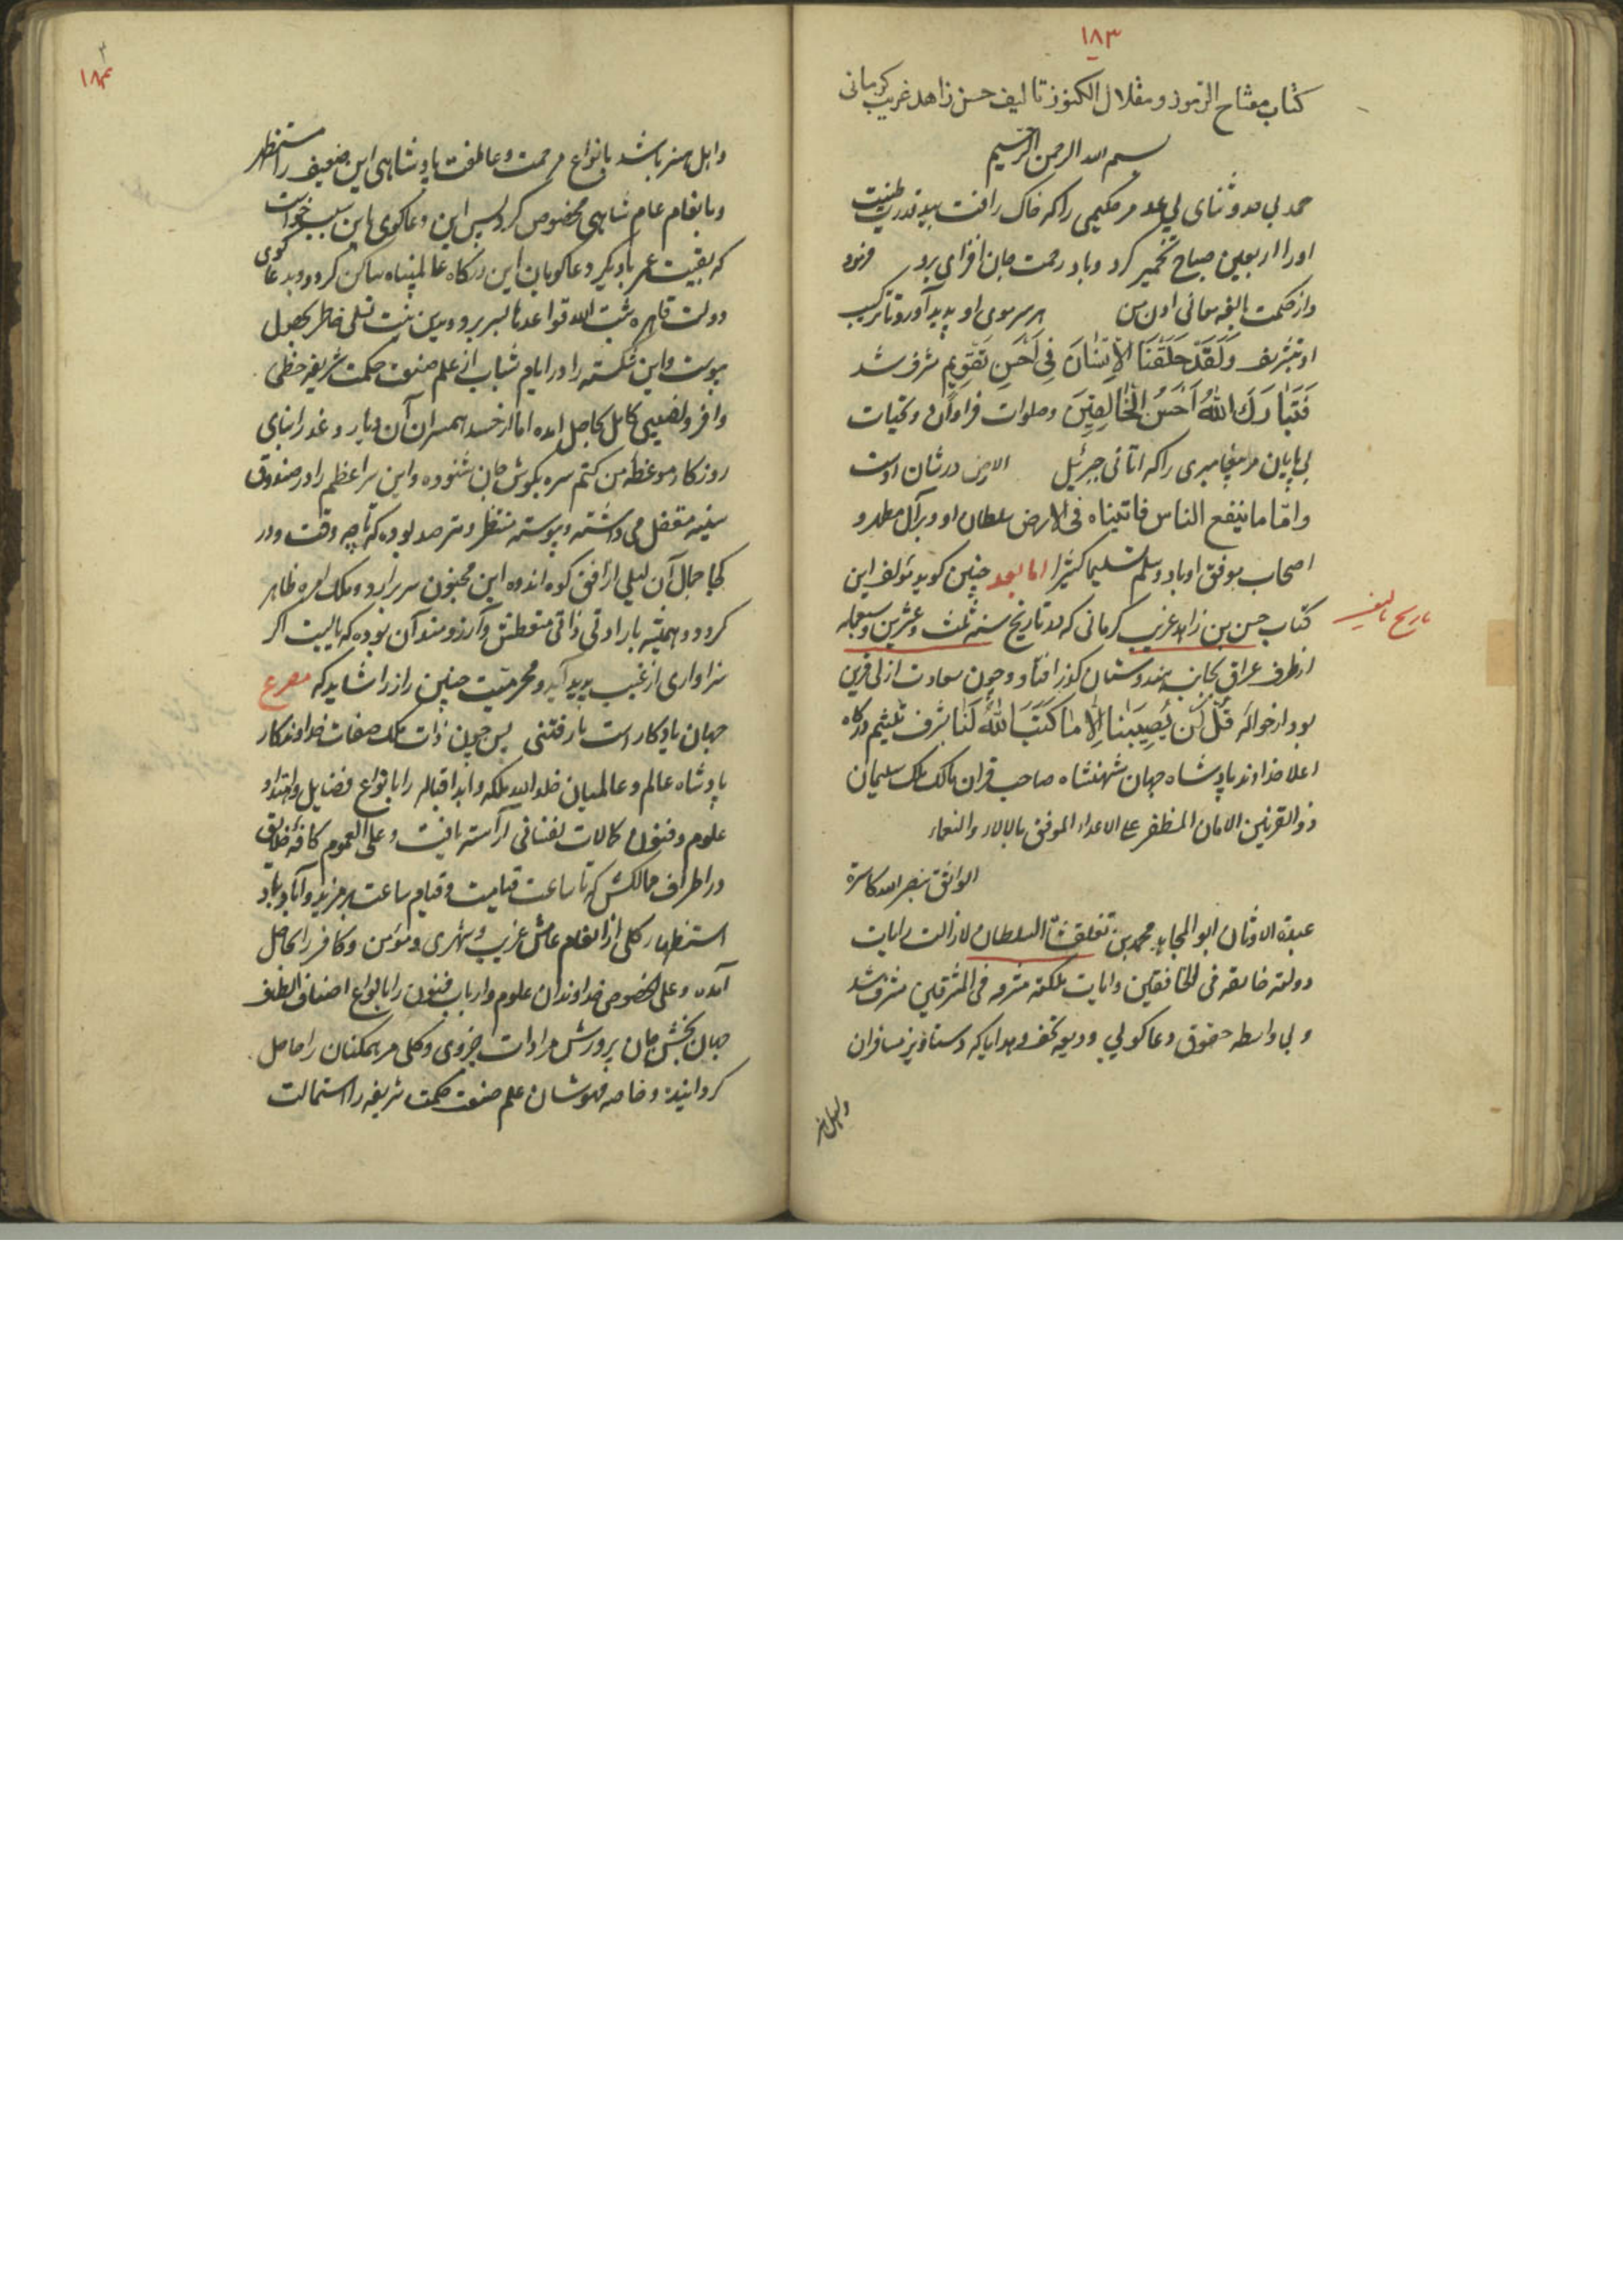 ۱۸۳
کتاب مفتاح الرموز و مفلال الکنوز تالیف حسن زاهد غریب کرمانی
بسم الله الرحمن الرحیم
حمد بی حد و ثنای بی عد مر حکیمی را که خاک رافت بید قدرت طینت
اورا اربعین صباح تخمیر کرد و باد رحمت جان افزای برو فرمود
واز حکمت بالغه معانی هر سر موی او پدید آورد تا ترکیب
او بتشریف وَلَقَدْ خَلَقْنَا الْاِنْسَانَ فِی اَحْسَنِ تَقْوِیمٍ مشرف شد
فَتَبَارَكَ اللهُ اَحْسَنُ الْخَالِقِینَ و صلوات فراوان و تحیات
بی پایان مر پیغامبری را که اتانی جبرئیل الارض در شان اوست
واما ما ینفع الناس فاتیناه فی الارض سلطان او و بر آل مطهر و
اصحاب موفق او باد و سلم تسلیما کثیرا اما بعد چنین کوید مؤلف این
کتاب حسن بن زاهد غریب کرمانی که در تاریخ سنه ثلث و عشرین و سبعمایه
تاریخ تالیف
از طرف عراق بجانب هندوستان کذر افتاد و چون سعادت ازلی قرین
بود از خوالهٔ قُلْ لَنْ یُصِیبَنَا اِلَّا مَا کَتَبَ اللهُ لَنَا بشرف تلثیم درکاه
اعلا خداوند پادشاه جهان شهنشاه صاحب قران مالک ملک سلیمان
ذوالقرنین الامان المظفر علی الاعداء الموفق بالالاء والنعماء
الواثق بنصر الله کاسرة
عبدة الاوثان ابو المجاهد محمد بن تغلق شاه السلطان لا زالت رایات
دولته خافقه فی الخافقین و ایات مملکته مشرفه فی المشرقین مشرف شد
و بی واسطه حقوق دعا کوئی و ودیعه تحفه و هدایا که دستاویز مسافران
واهل هنر
۱۸۴
واهل هنر باشد بانواع مرحمت و عاطفت پادشاهی این ضعیف را مستظهر
و بانعام عام شاهی مخصوص کرد پس این دعا کوی باین سبب خواست
که بقیت عمر با دیکر دعا کویان این درکاه عالمپناه ساکن کردد و بدعا کوی
دولت قاهره ثبت الله قواعدها بسر برد و بدین نیت تسلی خاطر بحصول
پیوست و این شکسته را در ایام شباب از علم صنعت حکمت شریفه حظی
وافر و نصیبی کامل بحاصل امده اما از حسد همسران آن دیار و غدر ابنای
روزکار موعظه من کتم سره بکوش جان شنوده و این سر اعظم را در صندوق
سینه مقفل می داشته و پیوسته منتظر و مترصد بوده که تا چه وقت و در
کجا جمال آن لیلی از افق کوه اندوه این مجنون سر برارد و ملک امره ظاهر
کردد و همیشه بارادتی ذاتی متعطش و آرزومند آن بوده که یا لیت اکر
سزاواری از غیب پدید آید و محرمیت چنین راز را شاید که مصرع
جهان یادکار است ما رفتنی پس چون ذات ملک صفات خداوندکار
پادشاه عالم و عالمیان خلد الله ملکه و ابد اقباله را بانواع فضایل و اعتداد
علوم و فنون کمالات نفسانی آراسته یافت و علی العموم کافهٔ خلایق
در اطراف ممالکش که تا ساعت قیامت و قیام ساعت بر مزید و آباد باد
استظهار کلی از انعام عامش غریب و شهری و مؤمن و کافر را بحاصل
آمده و علی الخصوص خداوندان علوم و ارباب فنون را بانواع اصناف الطف
جهان بخش جان پرورش مرادات جزوی و کلی مر همکنان را حاصل
کردانیده و خاصه مهوسان علم صنعت حکمت شریفه را استمالت